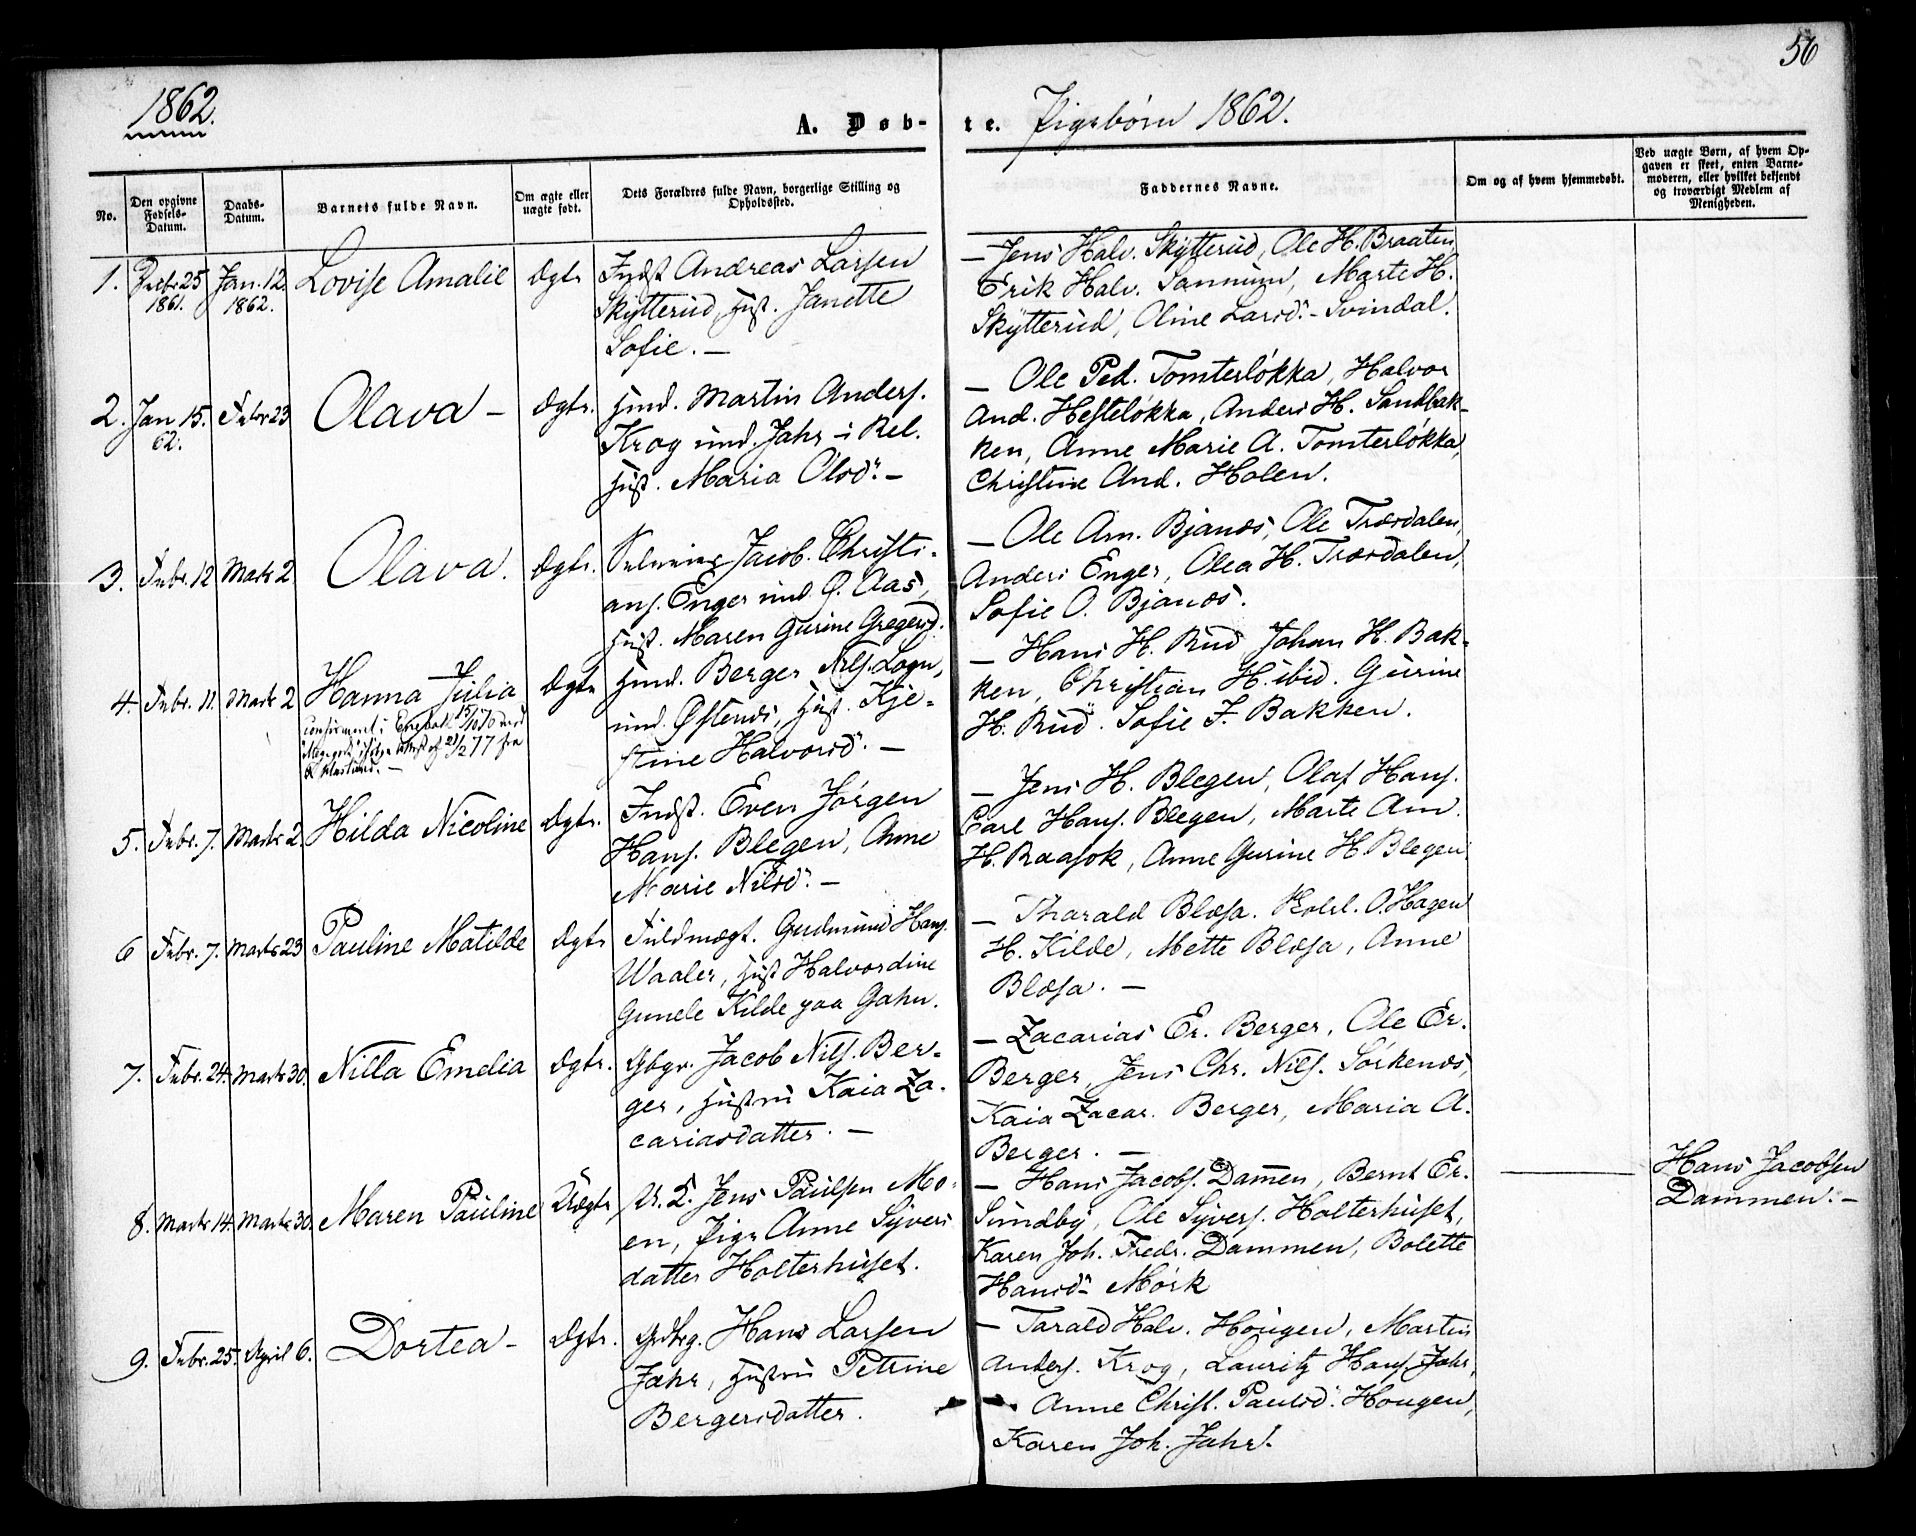 56
1862.
A. Døb-
te. Pigebørn 1862.
No.
Den opgivne Fødsels-Datum.
Daabs-Datum.
Barnets fulde Navn.
Om ægte eller uægte født.
Dets Forældres fulde Navn, borgerlige Stilling og Opholdssted.
Faddernes Navne.
Om og af hvem hjemmedøbt.
Ved uægte Børn, af hvem Opgaven er skeet, enten Barnemoderen, eller hvilket bekjendt og troværdigt Medlem af Menigheden.
1. Dcbr. 25 1861. Jan. 12. 1862. Lovise Amalie Ægte
Indst Andreas Larsen
Skÿtterud, Hust. Janette
Sofie. —
— Jens Halv. Skÿtterud, Ole H. Braaten,
Erik Halv. Sannum, Marte H.
Skÿtterud, Oline Larsd. - Svindal.
2. Jan 15. 62. Febr 23 Olava — Ægte.
Hmd. Martin Anders.
Krog und. Jahr i Kel.
Hust. Maria Olsd. —
— Ole Ped. Tomterløkka, Halvor
And. Hesteløkka, Anders H. Sandbak-
ken, Anne Marie A. Tomterløkka,
Christine And. Holen.
3. Febr. 12 Marts 2 Olava. Ægte.
Selveier Jacob Christi-
ans. Enger und. Ø. Aas,
Hust. Maren Gurine Gregersd.
— Ole Am. Bjanæs, Ole Trærdalen,
Anders Enger, Olea H. Trærdalen,
Sofie O. Bjanæs.
4. Febr. 11. Marts 2 Hanna Julia Ægte
confirmeret i 15/10 70 med
af 21/2 77 fra
Hmd. Berger Nils. Logn,
und. Østenes, Hust. Kje-
stine Halvorsd. —
— Hans H. Rud Johan H. Bak-
ken, Christian H. ibid. Gurine
H. Rud. Sofie J. Bakken.
5. Febr. 7. Marts 2. Hilda Nicoline Ægte.
Indst. Even Jørgen
Hans. Blegen, Anne
Marie Nilsd. —
— Jens H. Blegen, Olaf Hans.
Carl Hans. Blegen, Marte Am.
H. Raasok, Anne Gurine H. Blegen
6 Febr. 7. Marts 23 Pauline Matilde Ægte
Fuldmægt. Gudmund Hans.
Waaler, Hust Halvordine
Gunele Kilde paa Gahn.
— Tharald Blæsa. O. Hagen
H. Kilde, Mette Blæsa, Anne
Blæsa. —
7. Febr. 24. Marts 30. Nilla Emelia Ægte.
Gbgr. Jacob Nils. Ber-
ger, Hustru Kaia Za-
cariasdatter. —
— Zacarias Er. Berger, Ole Er.
Berger, Jens Chr. Nils. Sørkenæs,
Kaia Zacar. Berger, Maria A.
Berger. —
8. Marts 14. Marts 30. Maren Pauline Uægte
U. K. Jens Paulsen Mo-
en, Pige Anne Syvers
datter Holterhuset.
— Hans Jacobs. Dam̄en, Bernt Er.
Sundby, Ole Syvers. Holterhuset,
Karen Joh. Fredr. Dammen, Bolette
Hansd. Mørk
Hans Jacobsen
Dammen. —
9. Febr. 25. April 6. Dortea — Ægte.
Gdbrg. Hans Larsen
Jahr, Hustru Petrine
Bergersdatter.
— Tarald Halv. Hougen, Martin
Anders. Krog, Lauritz Hans. Jahr,
Anne Christ. Paulsd. Hougen,
Karen Joh. Jahr.